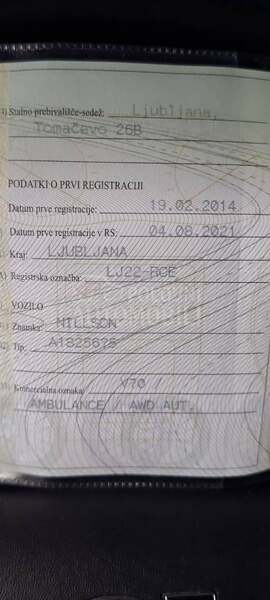 Stalno prebivališče-sedež: Ljubljana,
Tomačevo 26B
PODATKI O PRVI REGISTRACIJI
Datum prve registracije: 19.02.2014
Datum prve registracije v RS: 04.08.2021
Kraj: LJUBLJANA
A) Registrska označba: LJ22-RCE
VOZILO
Znamka: NILLSON
Tip: A1825675
Komercialna oznaka: V70 /
AMBULANCE / AWD AUT.